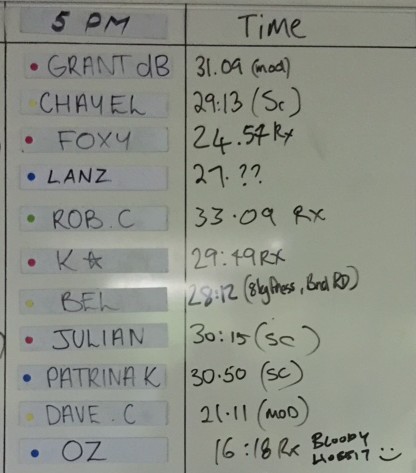 5 PM Time
GRANT dB 31.09 (mod)
CHAYEL 29:13 (Sc)
FOXY 24.57 Rx
LANZ 27.??
ROB.C 33.09 Rx
K☆ 29:49 RX
BEL 28:12 (8kg Press, Band RD)
JULIAN 30:15 (SC)
PATRINA K 30.50 (SC)
DAVE.C 21.11 (MOD)
OZ 16:18 Rx BLOODY